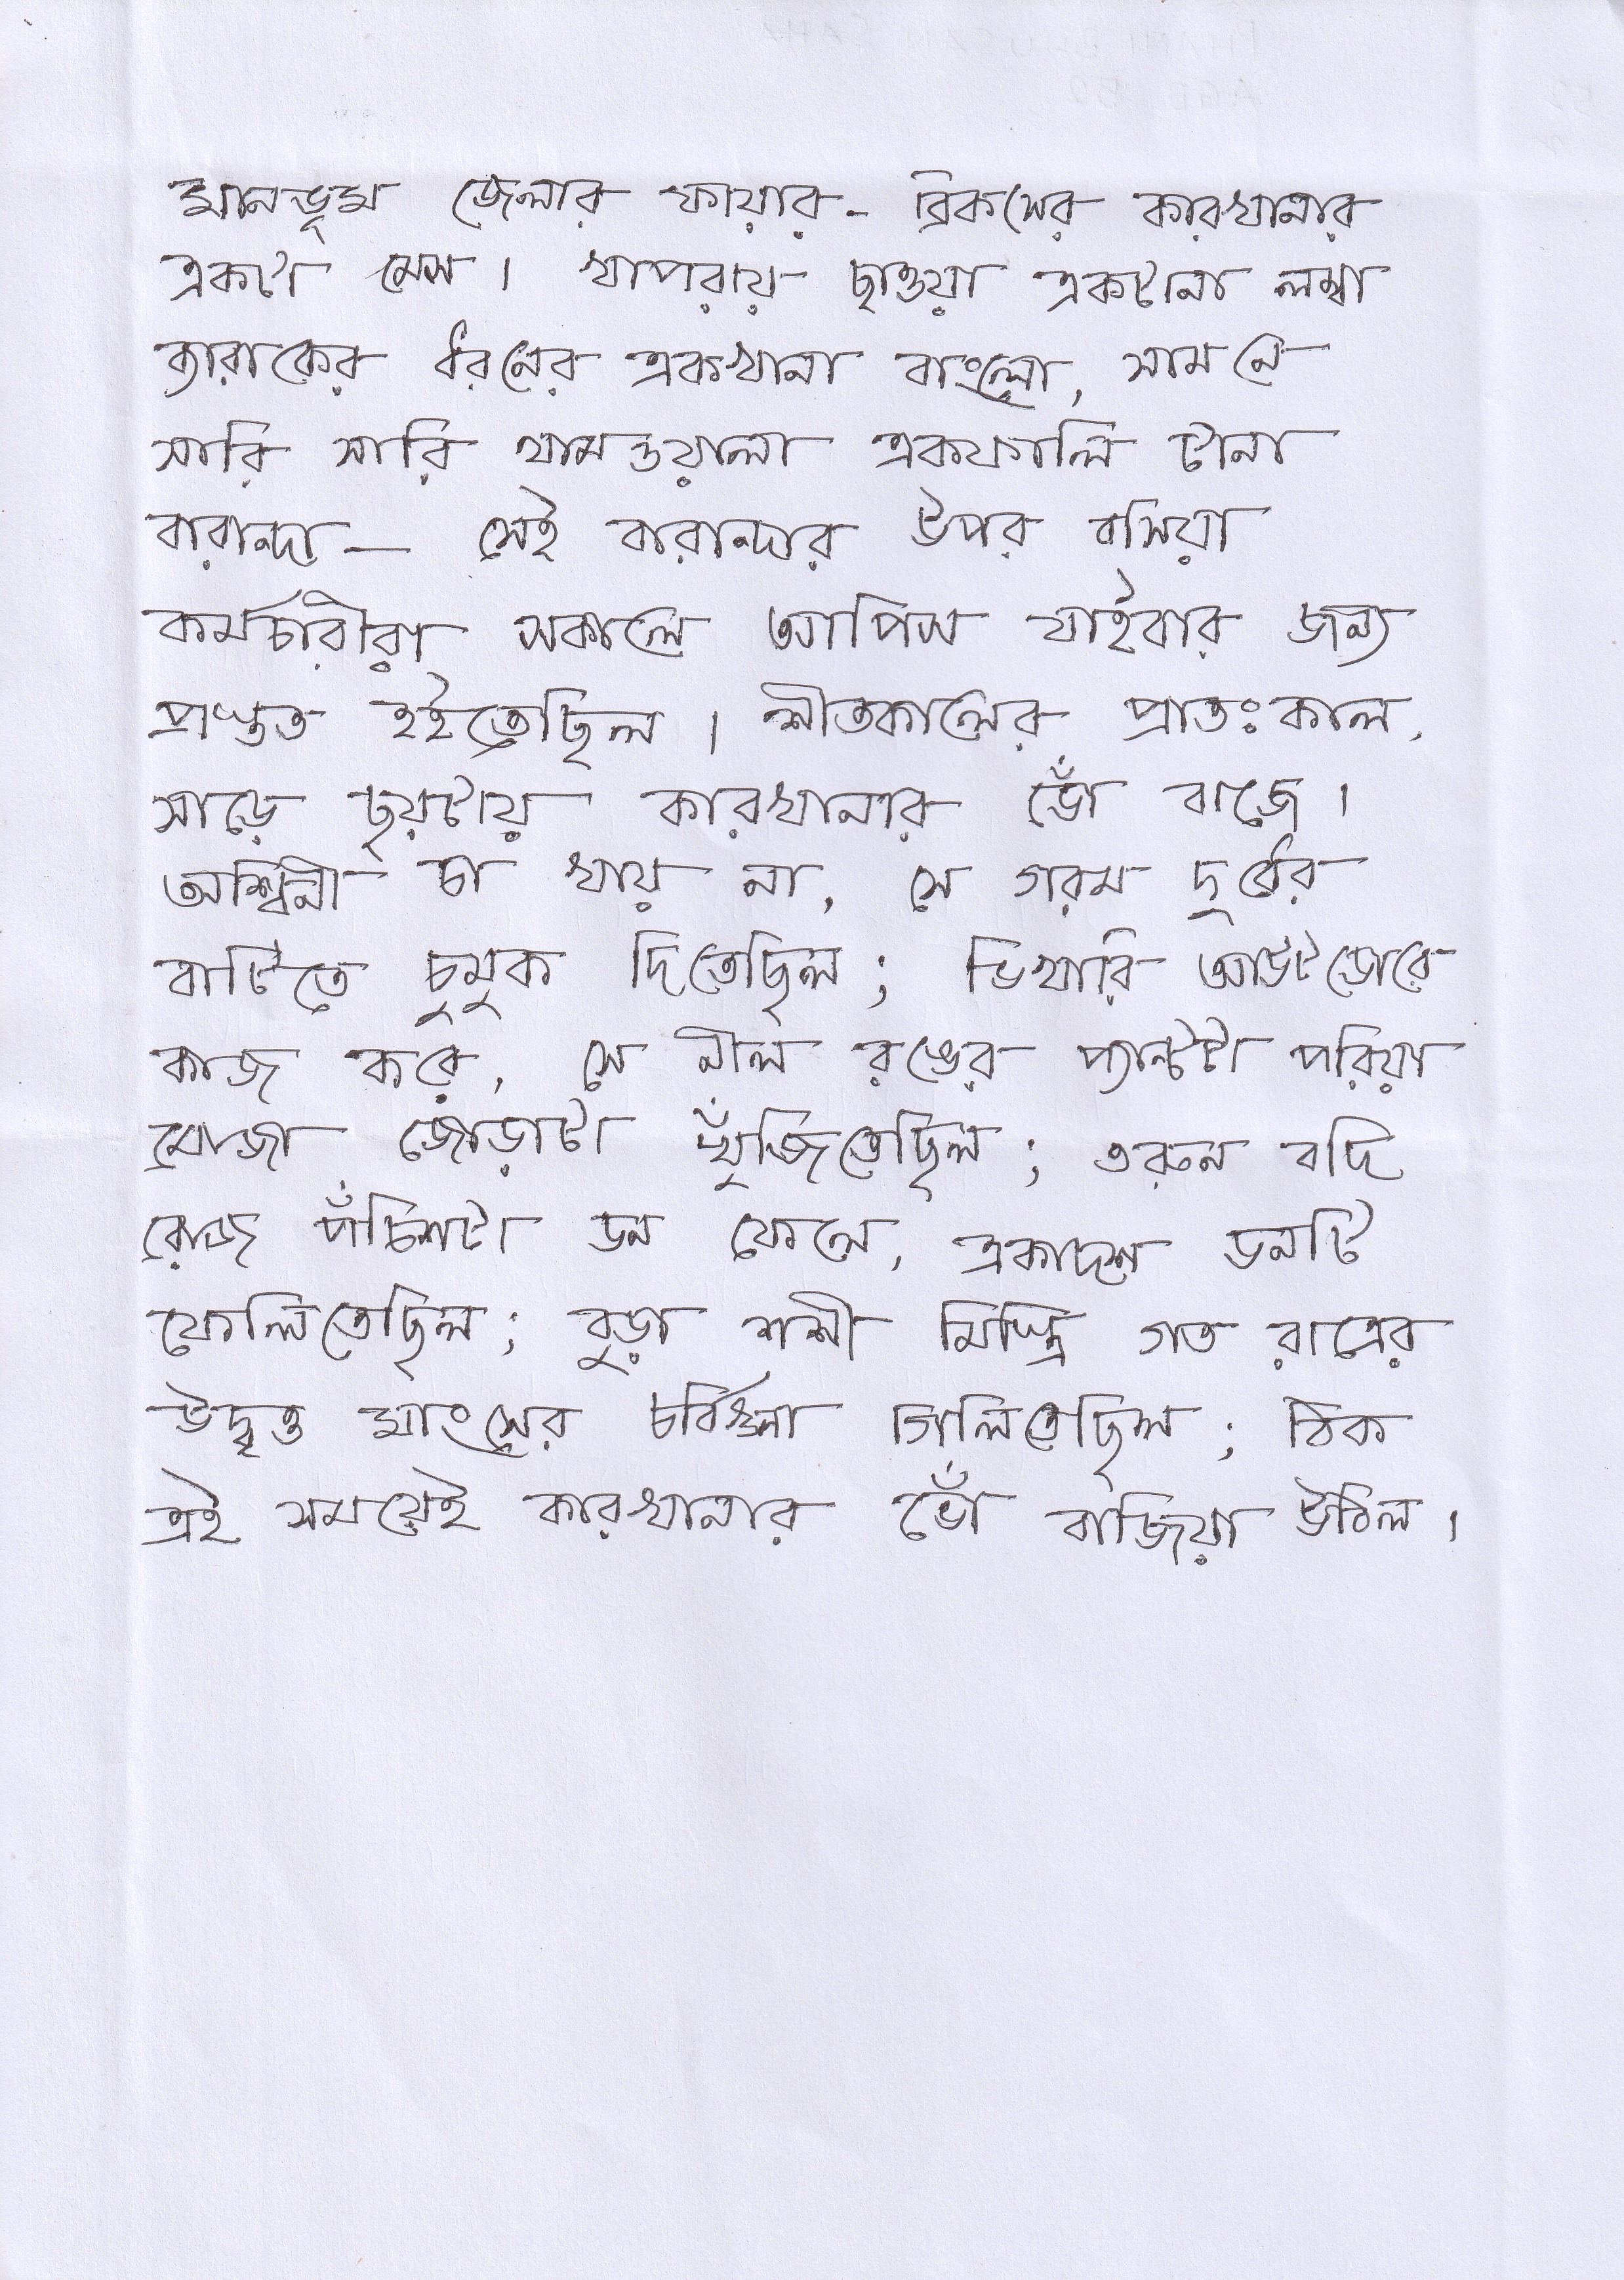 মানভূম জেলার ফায়ার- ব্রিকসের কারখানার
একটা মেস। খাপরায় ছাওয়া একটানা লম্বা
ব্যারাকের ধরনের একখানা বাংলো, সামনে
সারি সারি থামওয়ালা একফালি টানা
বারান্দা— সেই বারান্দার উপর বসিয়া
কর্মচারীরা সকালে আপিস যাইবার জন্য
প্রস্তুত হইতেছিল। শীতকালের প্রাতঃকাল,
সাড়ে ছয়টায় কারখানার ভোঁ বাজে।
অশ্বিনী চা খায় না, সে গরম দুধের
বাটিতে চুমুক দিতেছিল; ভিখারি আউটডোরে
কাজ করে, সে নীল রঙের প্যান্টটা পরিয়া
মোজা জোড়াটা খুঁজিতেছিল; তরুন বদি
রোজ পঁচিশটা ডন ফেলে, একাদশ ডনটি
ফেলিতেছিল; বুড়া শশী মিস্ত্রি গত রাত্রের
উদ্বৃত্ত মাংসের চর্বিগুলা গিলিতেছিল; ঠিক
এই সময়েই কারখানার ভোঁ বাজিয়া উঠিল।